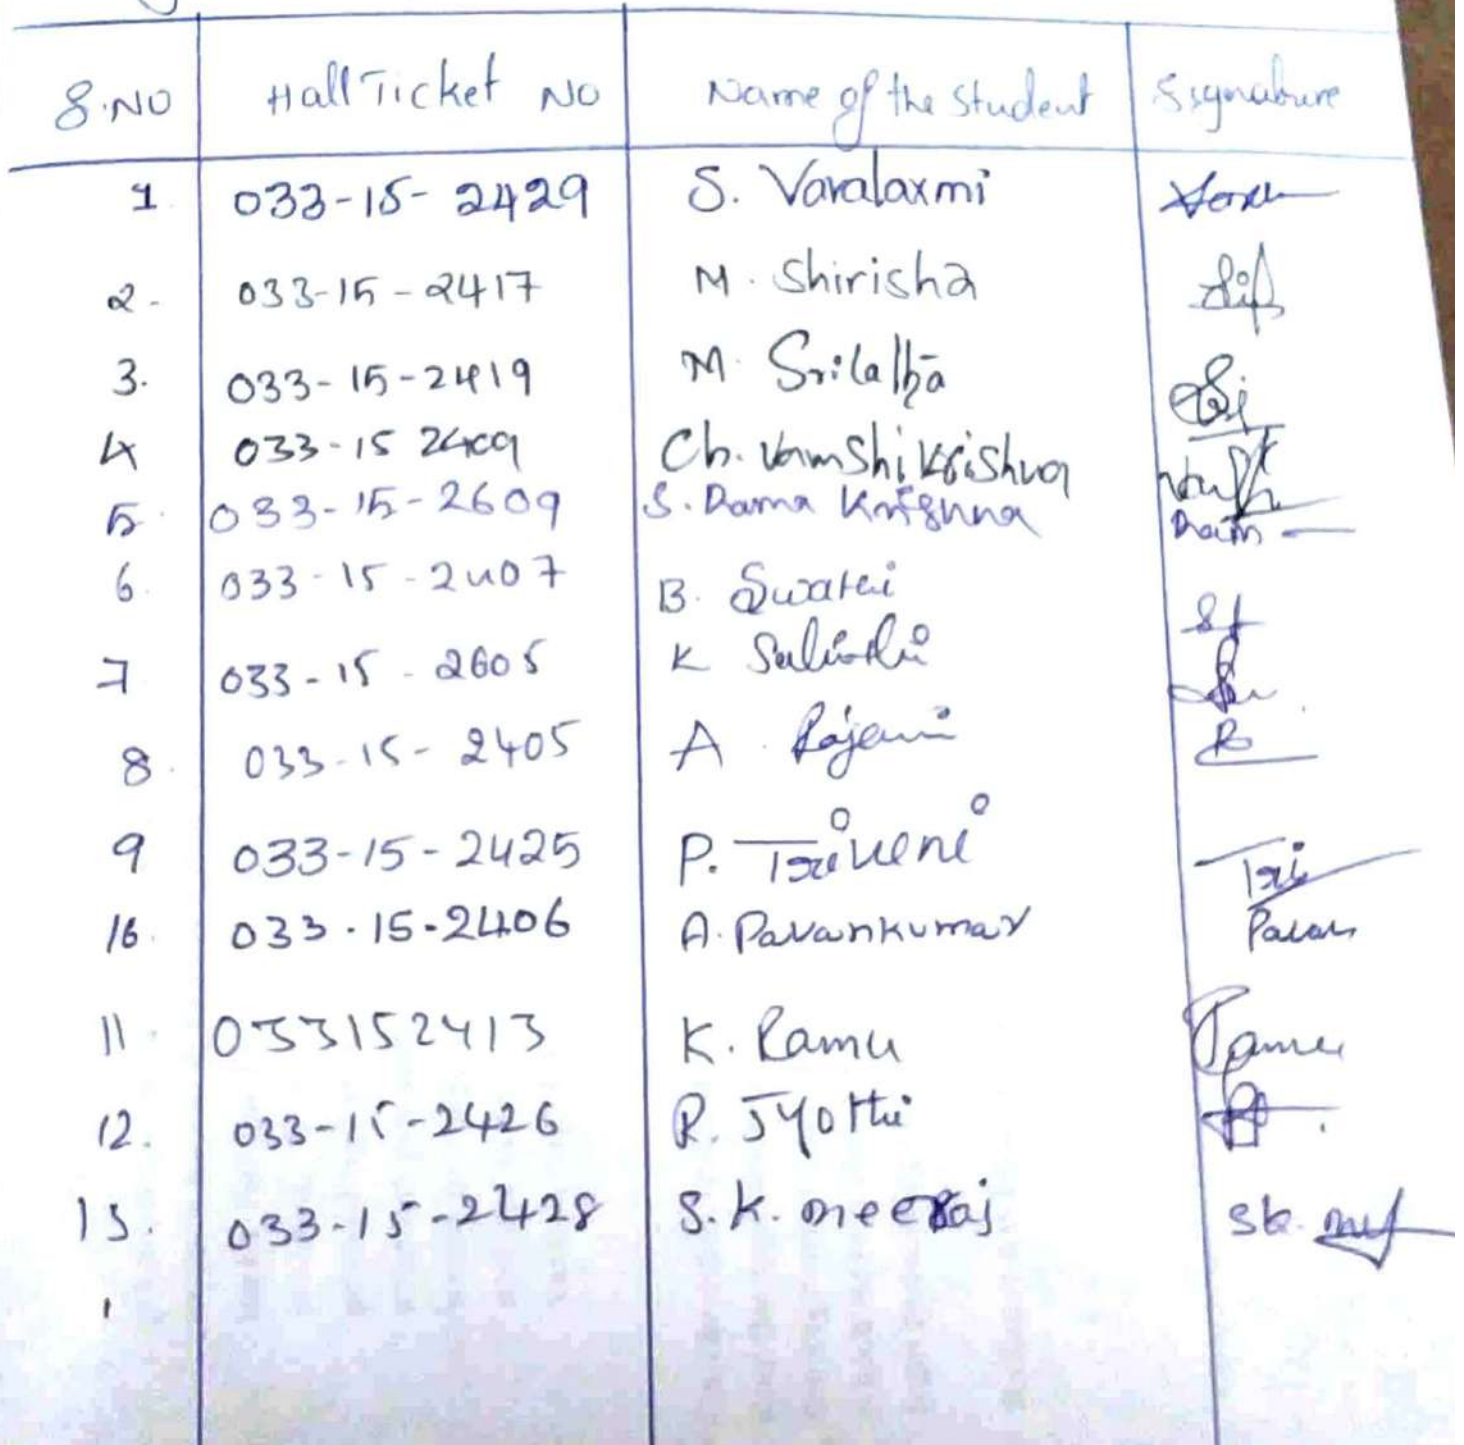 S.NO Hall Ticket NO Name of the Student Ssignature
1 033-15-2429 S. Varalaxmi
2. 033-15-2417 M. Shirisha
3. 033-15-2419 M. Srilatha
4 033-15 2409 Ch. VamshiKrishna
5. 033-15-2609 S. Rama Krishna Ram
6. 033-15-2407 B. Swathi
7 033-15-2605 K
8. 033-15-2405 A. Rajani R
9 033-15-2425 P. Triveni Tri
10. 033-15-2406 A. Pavankumar Pavan
11. 033152413 K. Ramu Ramu
12. 033-15-2426 R. Jyothi
13. 033-15-2428 S.K. meeraj Sk.